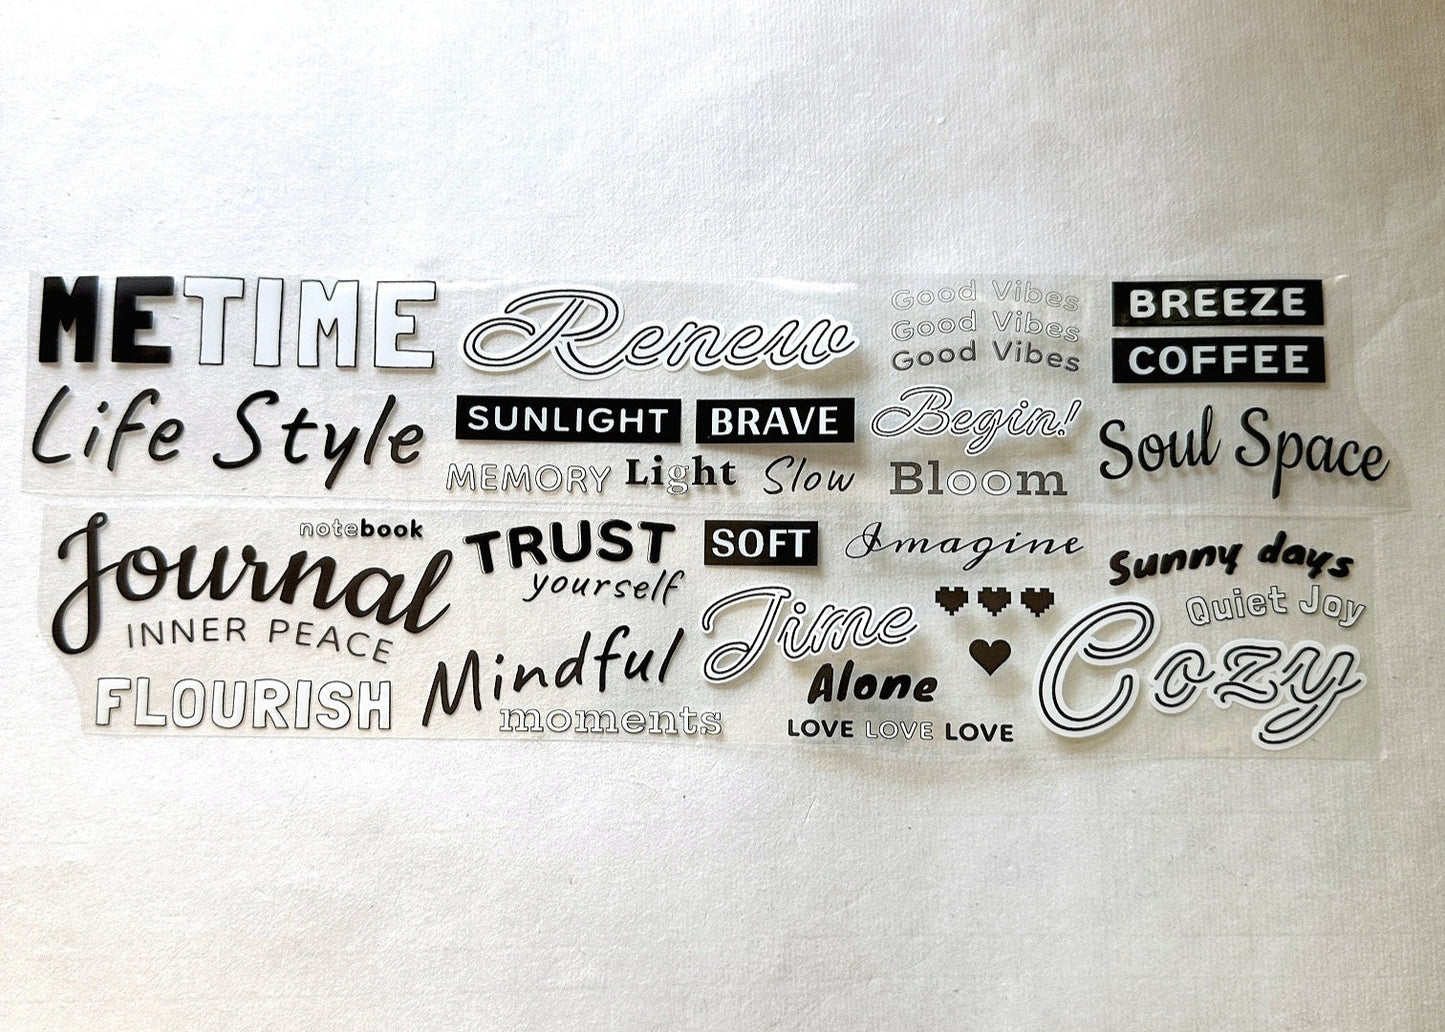 METIME
Renew
Good Vibes
Good Vibes
Good Vibes
BREEZE
COFFEE
Life Style
SUNLIGHT
BRAVE
Begin!
Soul Space
MEMORY
Light
Slow
Bloom
Journal
notebook
INNER PEACE
FLOURISH
TRUST
yourself
Mindful
moments
SOFT
Imagine
Time
Alone
LOVE LOVE LOVE
Sunny days
Quiet Joy
Cozy